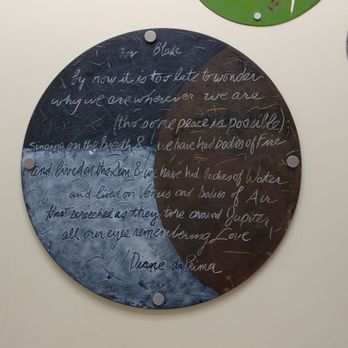 For Blake
by now it is too late to wonder
why we are wherever we are
(tho some peace is possible)
singing on the Breath & we have had bodies of Fire
and lived on the Sun & we have had bodies of Water
and lived on Venus and bodies of Air
that screeched as they tore around Jupiter
all our eyes remembering Love
Diane di Prima